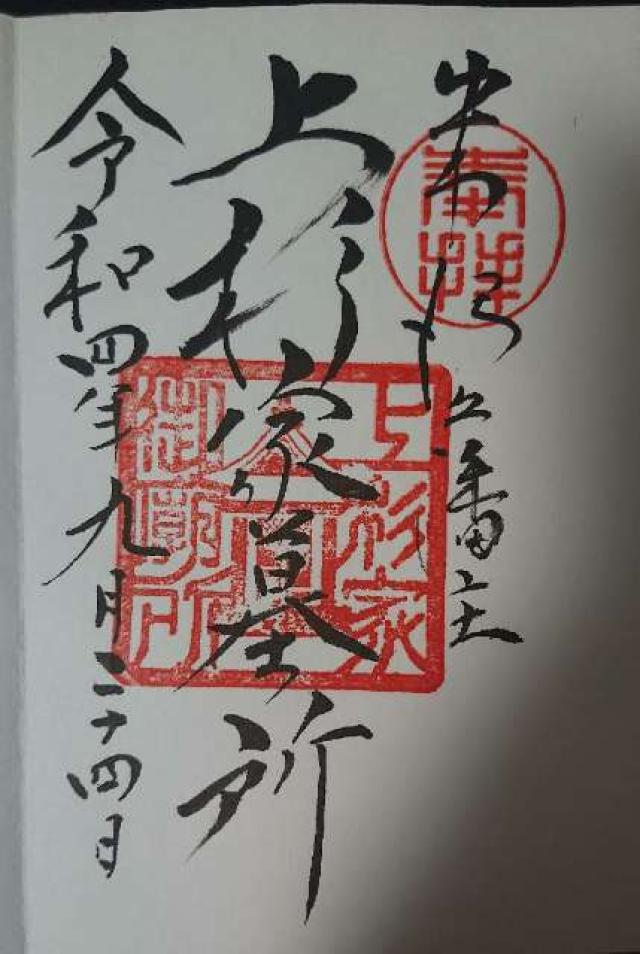 奉拝
米沢藩主
上杉家墓所
令和四年九月二十四日
上杉家
御廟所